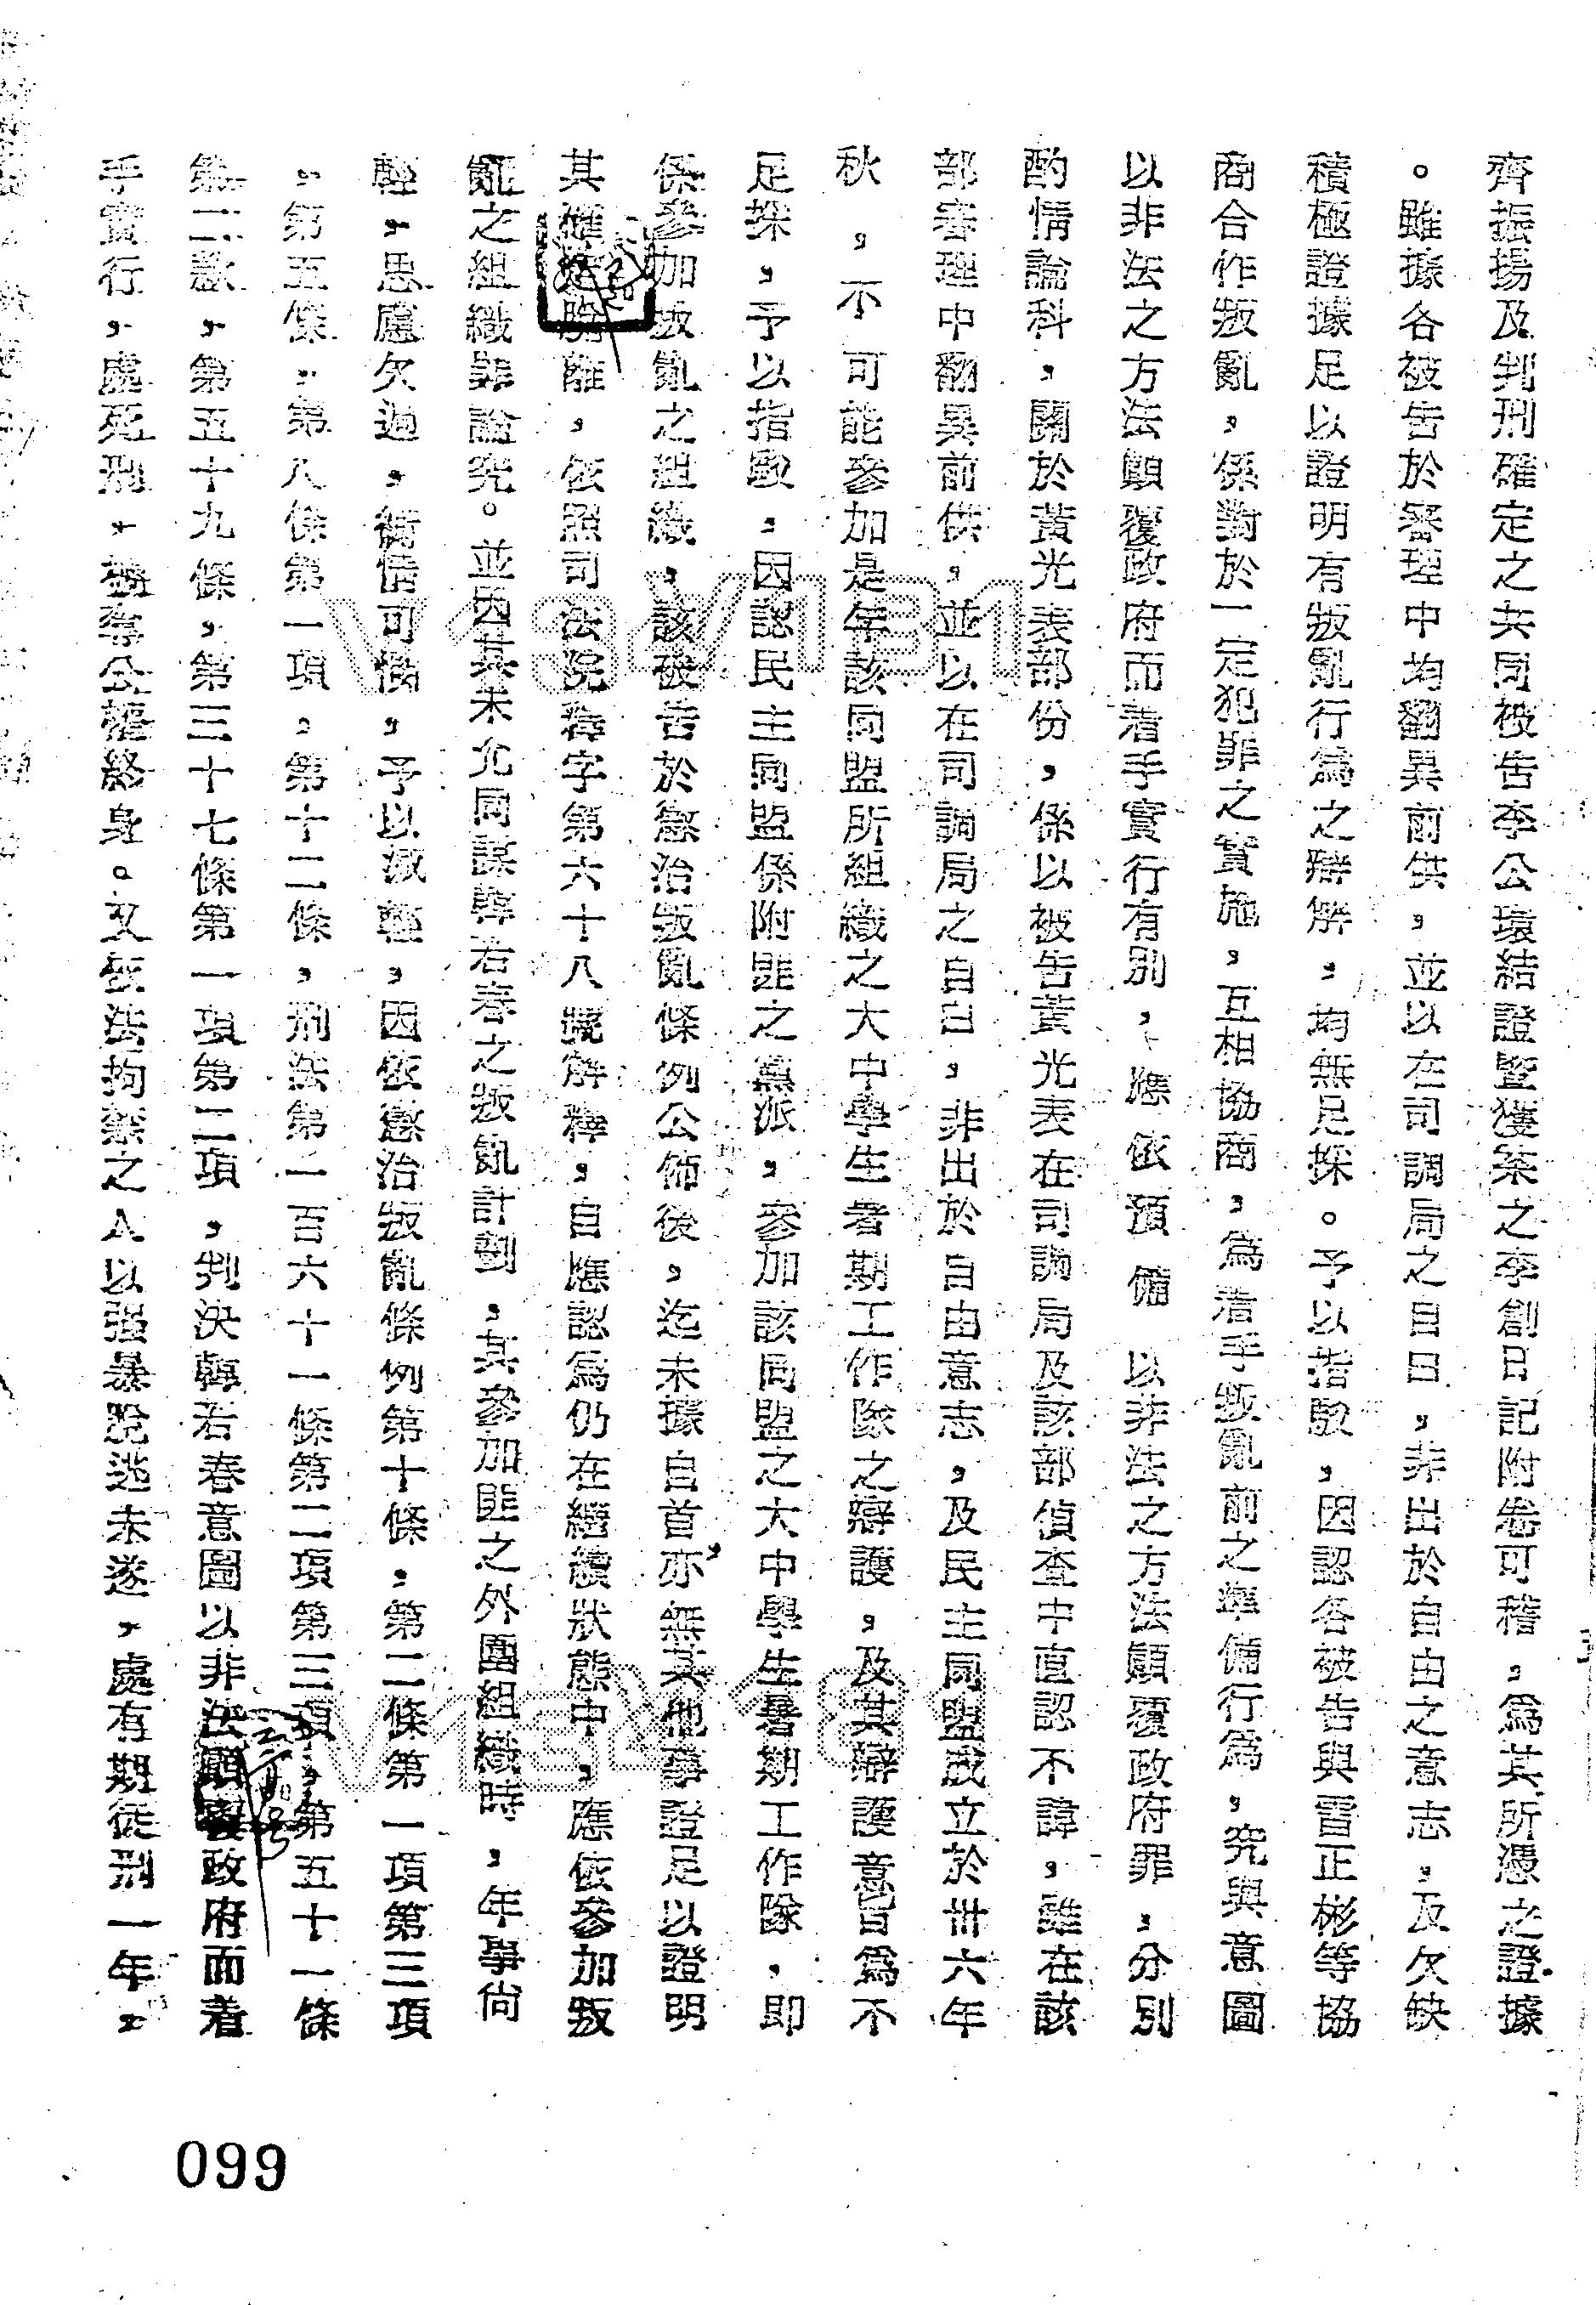 齊振揚及判刑確定之共同被告李公環結證暨獲案之李創日記附卷可稽，為其所憑之證據
。雖據各被告於審理中均翻異前供，並以在司調局之自白，非出於自由之意志，及欠缺
積極證據足以證明有叛亂行為之辯解，均無足採。予以指駁，因認各被告與雷正彬等協
商合作叛亂，係對於一定犯罪之實施，互相協商，為着手叛亂前之準備行為，究與意圖
以非法之方法顛覆政府而着手實行有別，應依預備以非法之方法顛覆政府罪，分別
酌情論科，關於黃光表部份，係以被告黃光表在司調局及該部偵查中直認不諱，雖在該
部審理中翻異前供，並以在司調局之自白，非出於自由意志，及民主同盟成立於卅六年
秋，不可能參加是年該同盟所組織之大中學生暑期工作隊之辯護，及其辯護意旨為不
足採，予以指駁，因認民主同盟係附匪之黨派，參加該同盟之大中學生暑期工作隊，即
係參加叛亂之組織，該被告於懲治叛亂條例公佈後，迄未據自首亦無其他事證足以證明
其確已脫離，依照司法院釋字第六十八號解釋，自應認為仍在繼續狀態中，應依參加叛
亂之組織罪論究。並因其未允同謀韓若春之叛亂計劃，其參加匪之外圍組織時，年事尚
輕，思慮欠週，衡情可憫，予以減輕，因依懲治叛亂條例第十條，第二條第一項第三項
，第五條，第八條第一項，第十二條，刑法第一百六十一條第二項第三項，第五十一條
第二款，第五十九條，第三十七條第一項第二項，判決韓若春意圖以非法顛覆政府而着
手實行，處死刑，褫奪公權終身。又依法拘禁之人以強暴脫逃未遂，處有期徒刑一年，
099
V134181
V134181